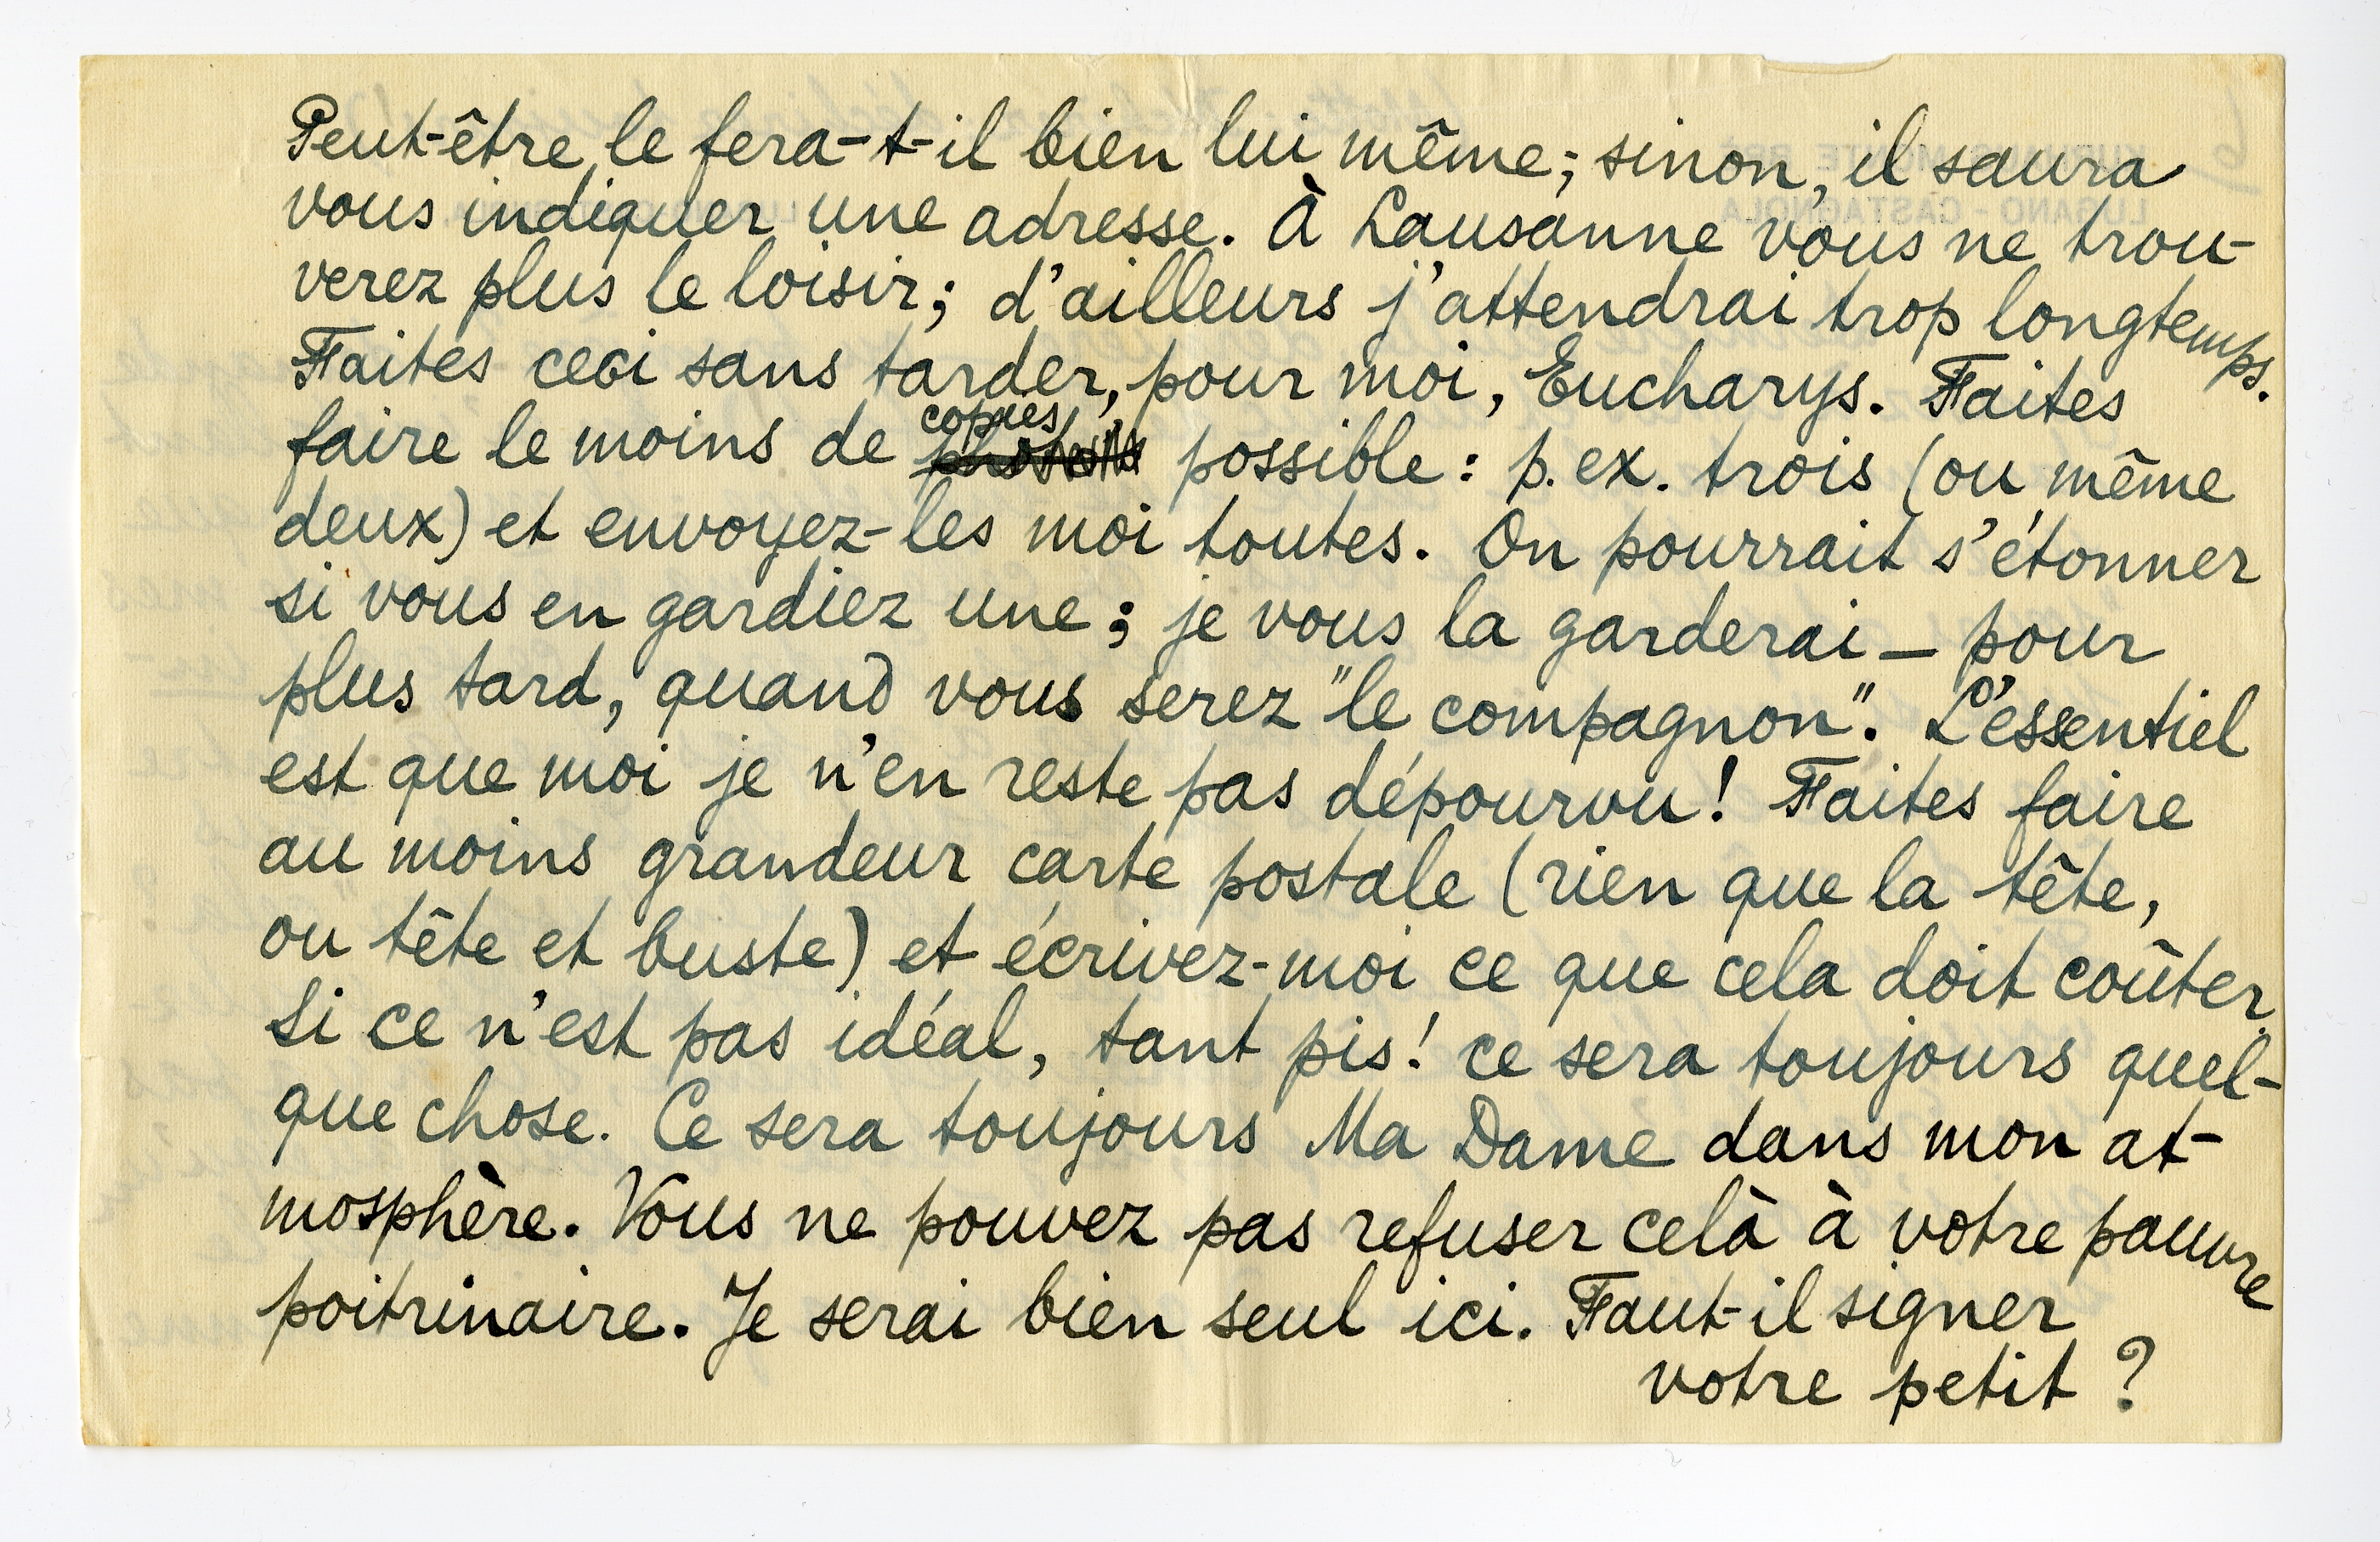 Peut-être le fera-t-il bien lui même; sinon, il saura
vous indiquer une adresse. À Lausanne vous ne trou-
verez plus le loisir; d'ailleurs j'attendrai trop longtemps.
Faites ceci sans tarder, pour moi, Eucharys. Faites
faire le moins de copies possible: p. ex. trois (ou même
deux) et envoyez-les moi toutes. On pourrait s'étonner
si vous en gardiez une; je vous la garderai — pour
plus tard, quand vous serez "le compagnon". L'essentiel
est que moi je n'en reste pas dépourvu! Faites faire
au moins grandeur carte postale (rien que la tête,
ou tête et buste) et écrivez-moi ce que cela doit coûter.
Si ce n'est pas idéal, tant pis! ce sera toujours quel-
que chose. Ce sera toujours Ma Dame dans mon at-
mosphère. Vous ne pouvez pas refuser celà à votre pauvre
poitrinaire. Je serai bien seul ici. Faut-il signer
votre petit?